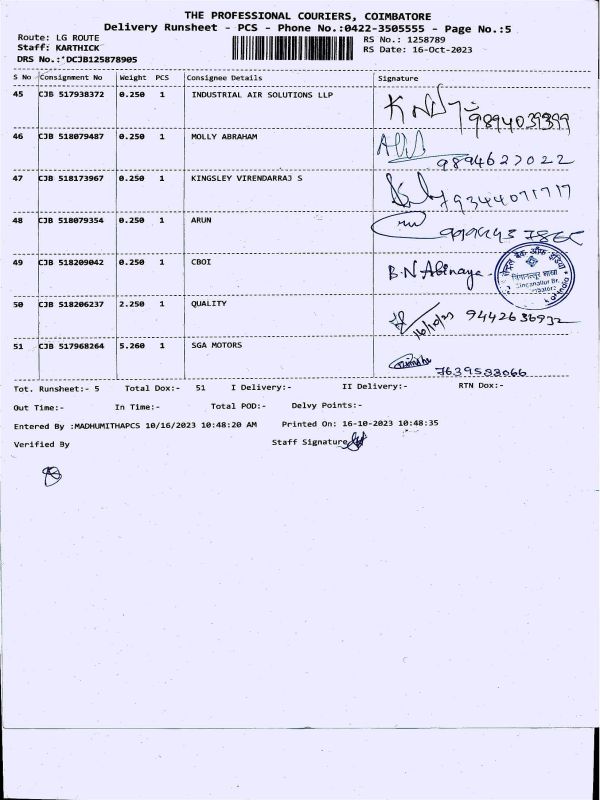 THE PROFESSIONAL COURIERS, COIMBATORE
Delivery Runsheet - PCS - Phone No.:0422-3505555 - Page No.:5
Route: LG ROUTE RS No.: 1258789
Staff: KARTHICK RS Date: 16-Oct-2023
DRS No.: DCJB125878905
S No Consignment No Weight PCS Consignee Details Signature
45 CJB 517938372 0.250 1 INDUSTRIAL AIR SOLUTIONS LLP
9894039399
46 CJB 518079487 0.250 1 MOLLY ABRAHAM
9894627022
47 CJB 518173967 0.250 1 KINGSLEY VIRENDARRAJ S
9344071717
48 CJB 518079354 0.250 1 ARUN
49 CJB 518209042 0.250 1 CBOI B.N Abinaya
50 CJB 518206237 2.250 1 QUALITY
16/10/23 9442636932
51 CJB 517968264 5.260 1 SGA MOTORS
7639583066
Tot. Runsheet:- 5 Total Dox:- 51 I Delivery:- II Delivery:- RTN Dox:-
Out Time:- In Time:- Total POD:- Delvy Points:-
Entered By :MADHUMITHAPCS 10/16/2023 10:48:20 AM Printed On: 16-10-2023 10:48:35
Verified By Staff Signature